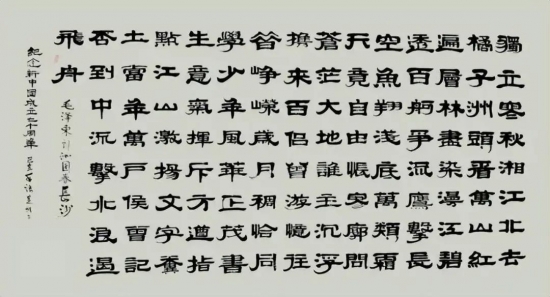 獨立寒秋湘江北去
橘子洲頭看萬山紅
遍層林盡染漫江碧
透百舸爭流鷹擊長
空魚翔淺底萬類霜
天竟自由悵寥廓問
蒼茫大地誰主沉浮
攜來百侶曾游憶往
昔崢嶸歲月稠恰同
學少年風華正茂書
生意氣揮斥方遒指
點江山激揚文字糞
土當年萬戶侯曾記
否到中流擊水浪遏
飛舟
毛泽東詞沁园春長沙
紀念新中国成立七十周年 己亥